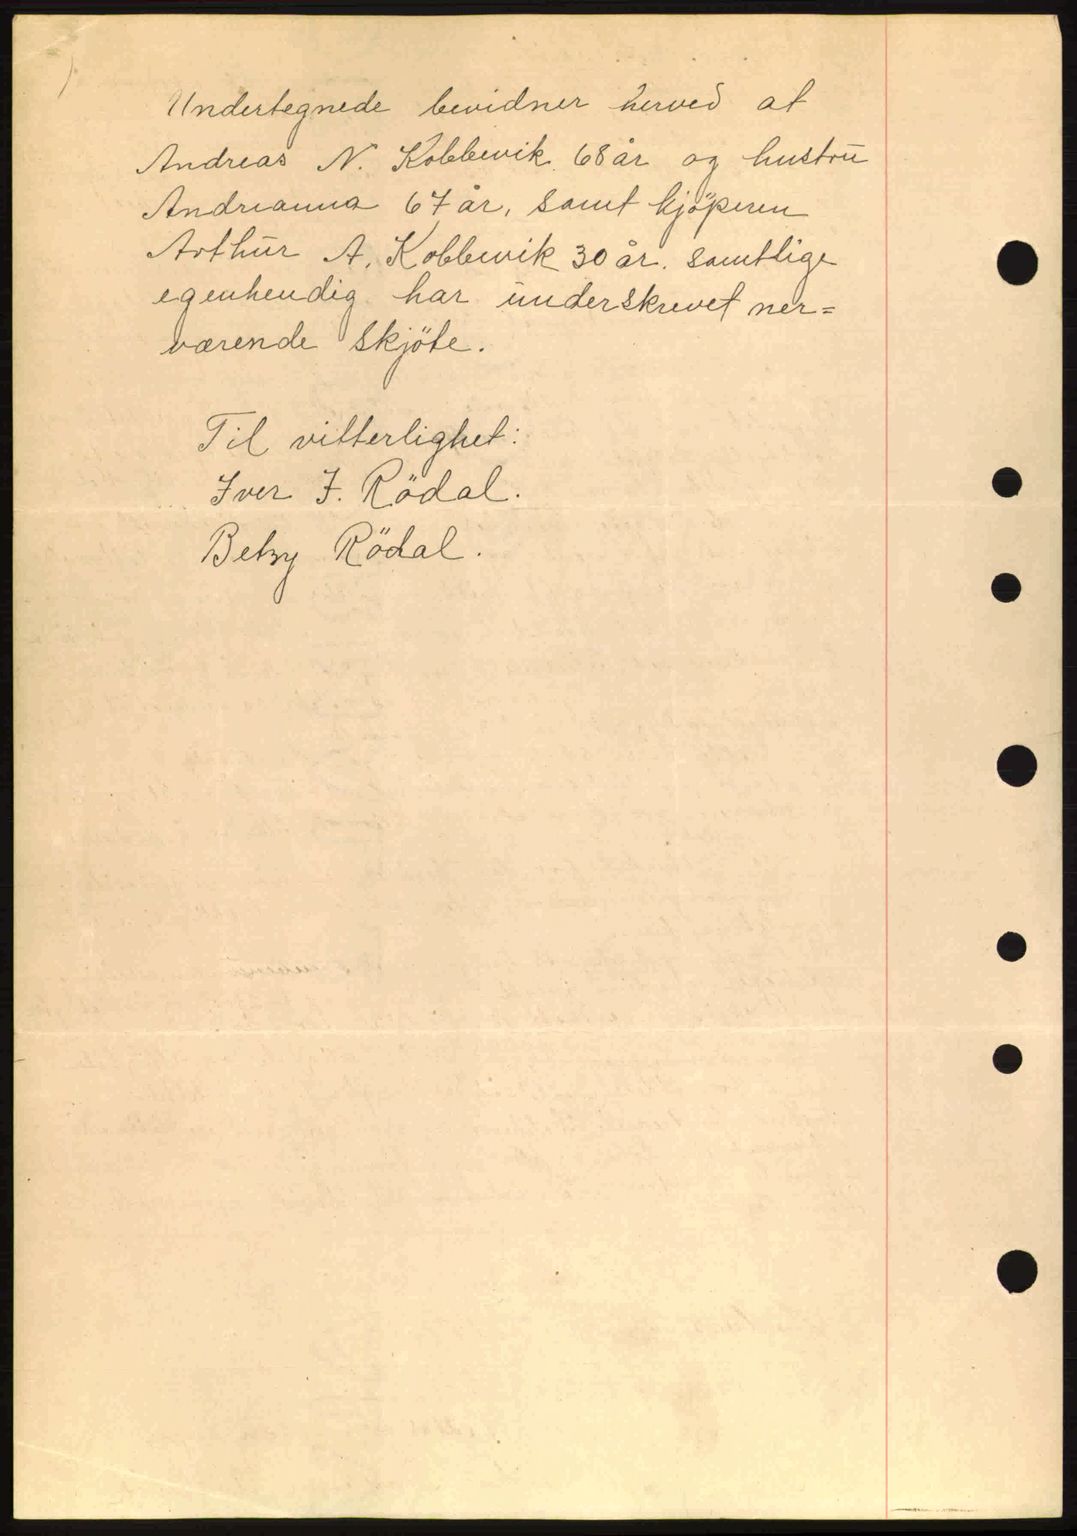 Undertegnede bevidner herved at
Andreas N. Kobbevik 68 år og hustru
Andrianna 67 år, samt kjöperen
Arthur A. Kobbevik 30 år. samtlige
egenhendig har underskrevet ner=
værende skjöte.
Til vitterlighet:
Iver I. Rödal.
Betzy Rödal.